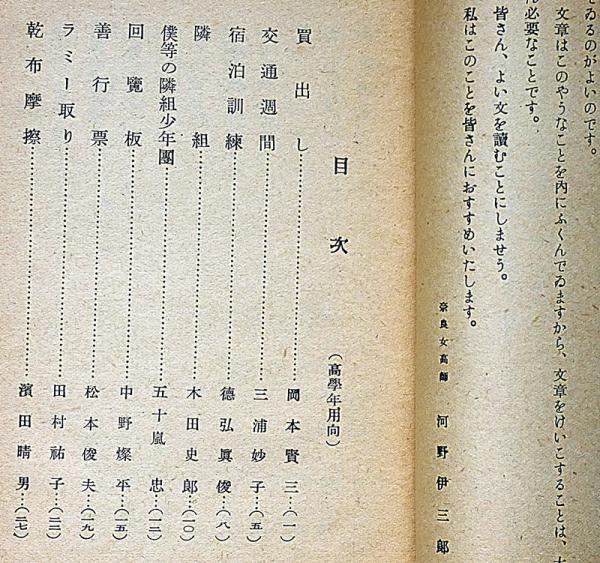 てゐるのがよいのです。
文章はこのやうなことを內にふくんでゐますから、文章をけいこすることは、
必要なことです。
皆さん、よい文を讀むことにしませう。
私はこのことを皆さんにおすすめいたします。
奈良女高師 河野伊三郞
目次 (高學年用向)
買出し…………岡本賢三…(一)
交通週間…………三浦妙子…(五)
宿泊訓練…………德弘眞俊…(八)
隣組…………木田史郞…(一〇)
僕等の隣組少年團…………五十嵐忠…(一二)
回覽板…………中野燦平…(一五)
善行票…………松本俊夫…(一九)
ラミー取り…………田村祐子…(二二)
乾布摩擦…………濱田晴男…(二七)